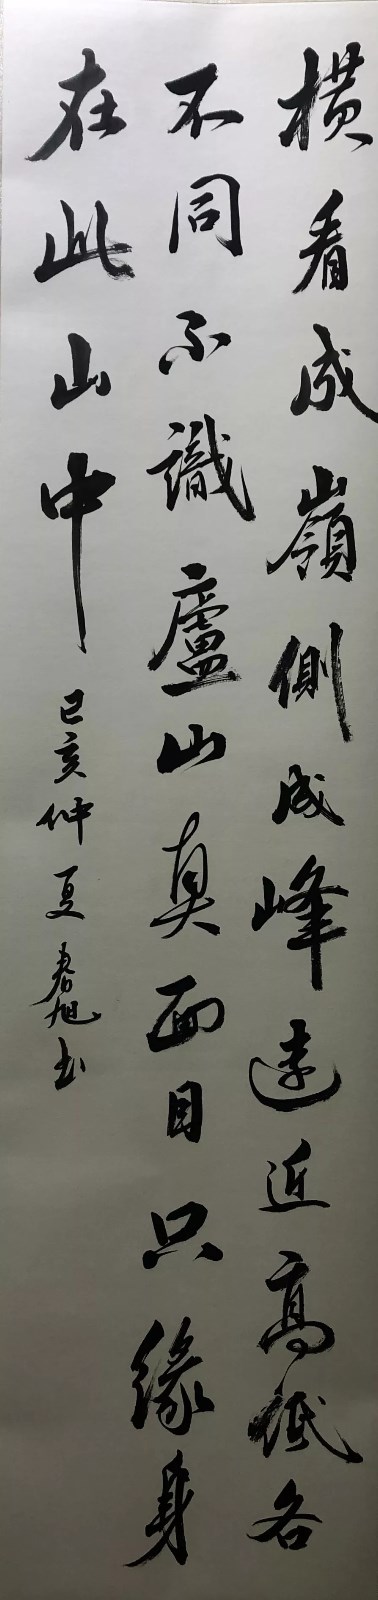 横看成嶺側成峰遠近高低各
不同不識廬山真面目只緣身
在此山中
己亥仲夏春旭书